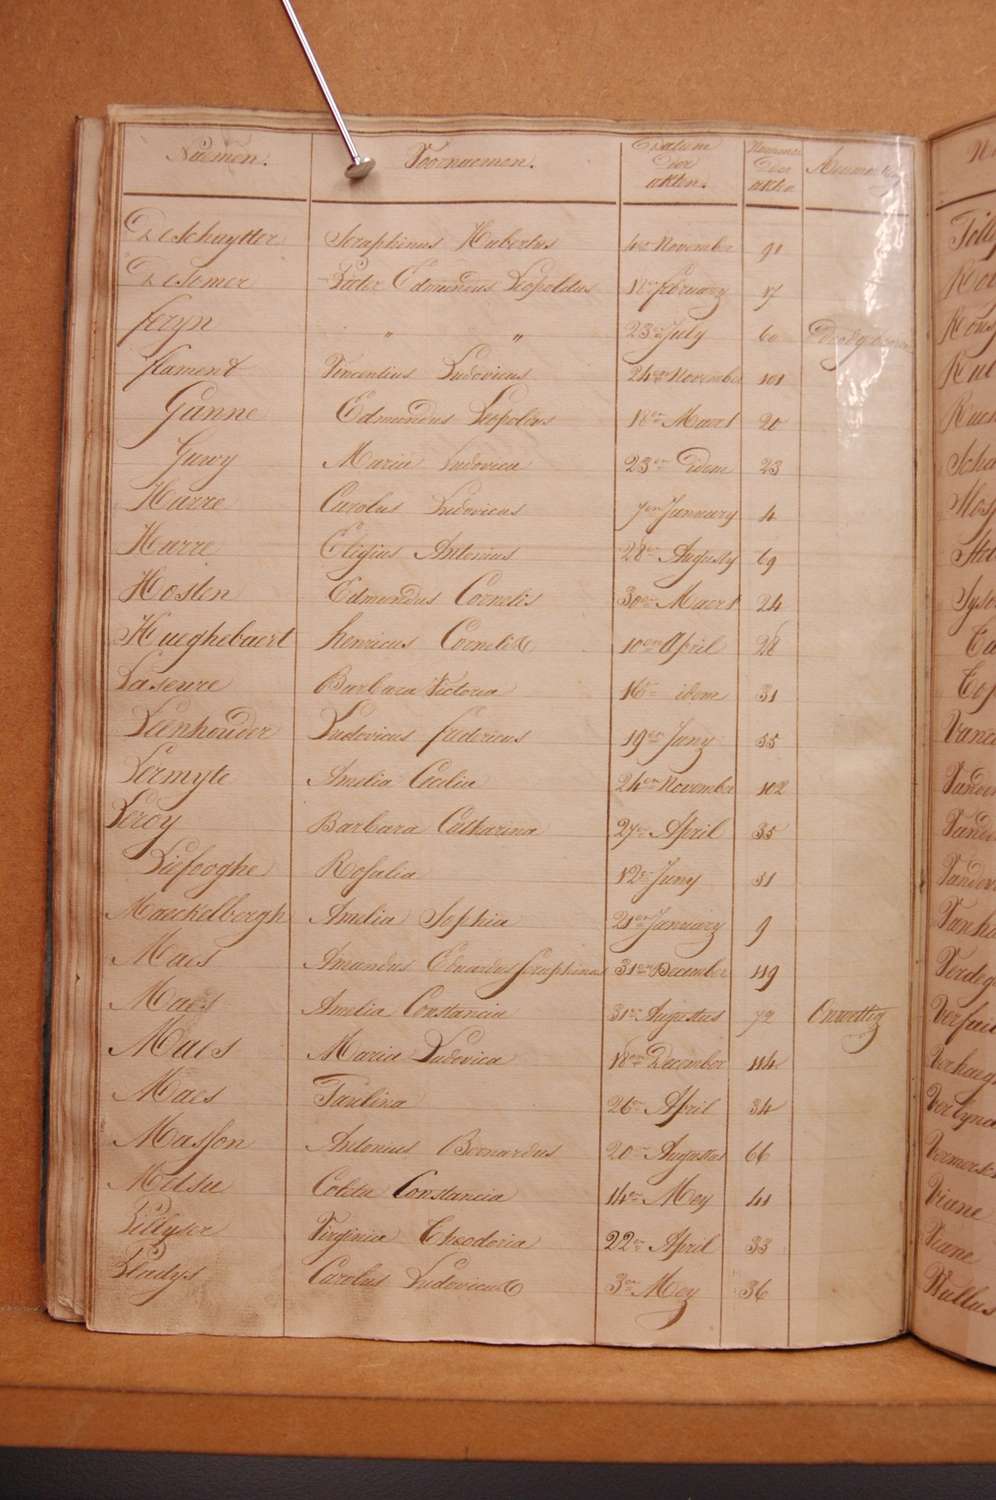 Naemen. Voornaemen. Datum der akten. Nummer der akten
De Schuytter Seraphinus Hubertus 4en November 91
De Somer Pieter Edmundus Leopoldus 18en february 17
feryn " " 23en July 60 Doodgeboren
flament Vincentius Ludovicus 24en November 101
Gunne Edmundus Leopoldus 18en Maert 20
Guwy Maria Ludovica 23en idem 23
Harre Carolus Ludovicus 7en January 4
Harre Eligius Antonius 28en Augusty 69
Hosten Edmundus Cornelis 30en Maert 24
Hueghebaert henricus Cornelis 10en April 28
Laseure Barbara Victoria 16en idem 31
Leenhouder Ludovicus fredericus 19en Juny 55
Lermyte Amelia Cecilia 24en November 102
Leroy Barbara Catharina 27en April 35
Liefooghe Rosalia 12en Juny 51
Maeckelbergh Amelia Sophia 21en January 9
Maes Amandus Eduardus Seraphinus 31en December 119
Maes Amelia Constancia 31en Augustus 72 Onwettig
Maes Maria Ludovica 18en December 114
Maes Paulina 26en April 34
Masson Antonius Bernardus 20en Augustus 66
Metsu Coleta Constancia 14en Mey 41
Pillyser Virginia Theodoria 22en April 33
Pladys Carolus Ludovicus 3en Mey 36